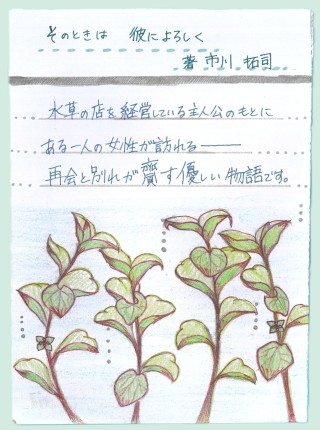 そのときは 彼によろしく
著 市川 拓司
水草の店を経営している主人公のもとに
ある一人の女性が訪れる――
再会と別れが齎す優しい物語です。